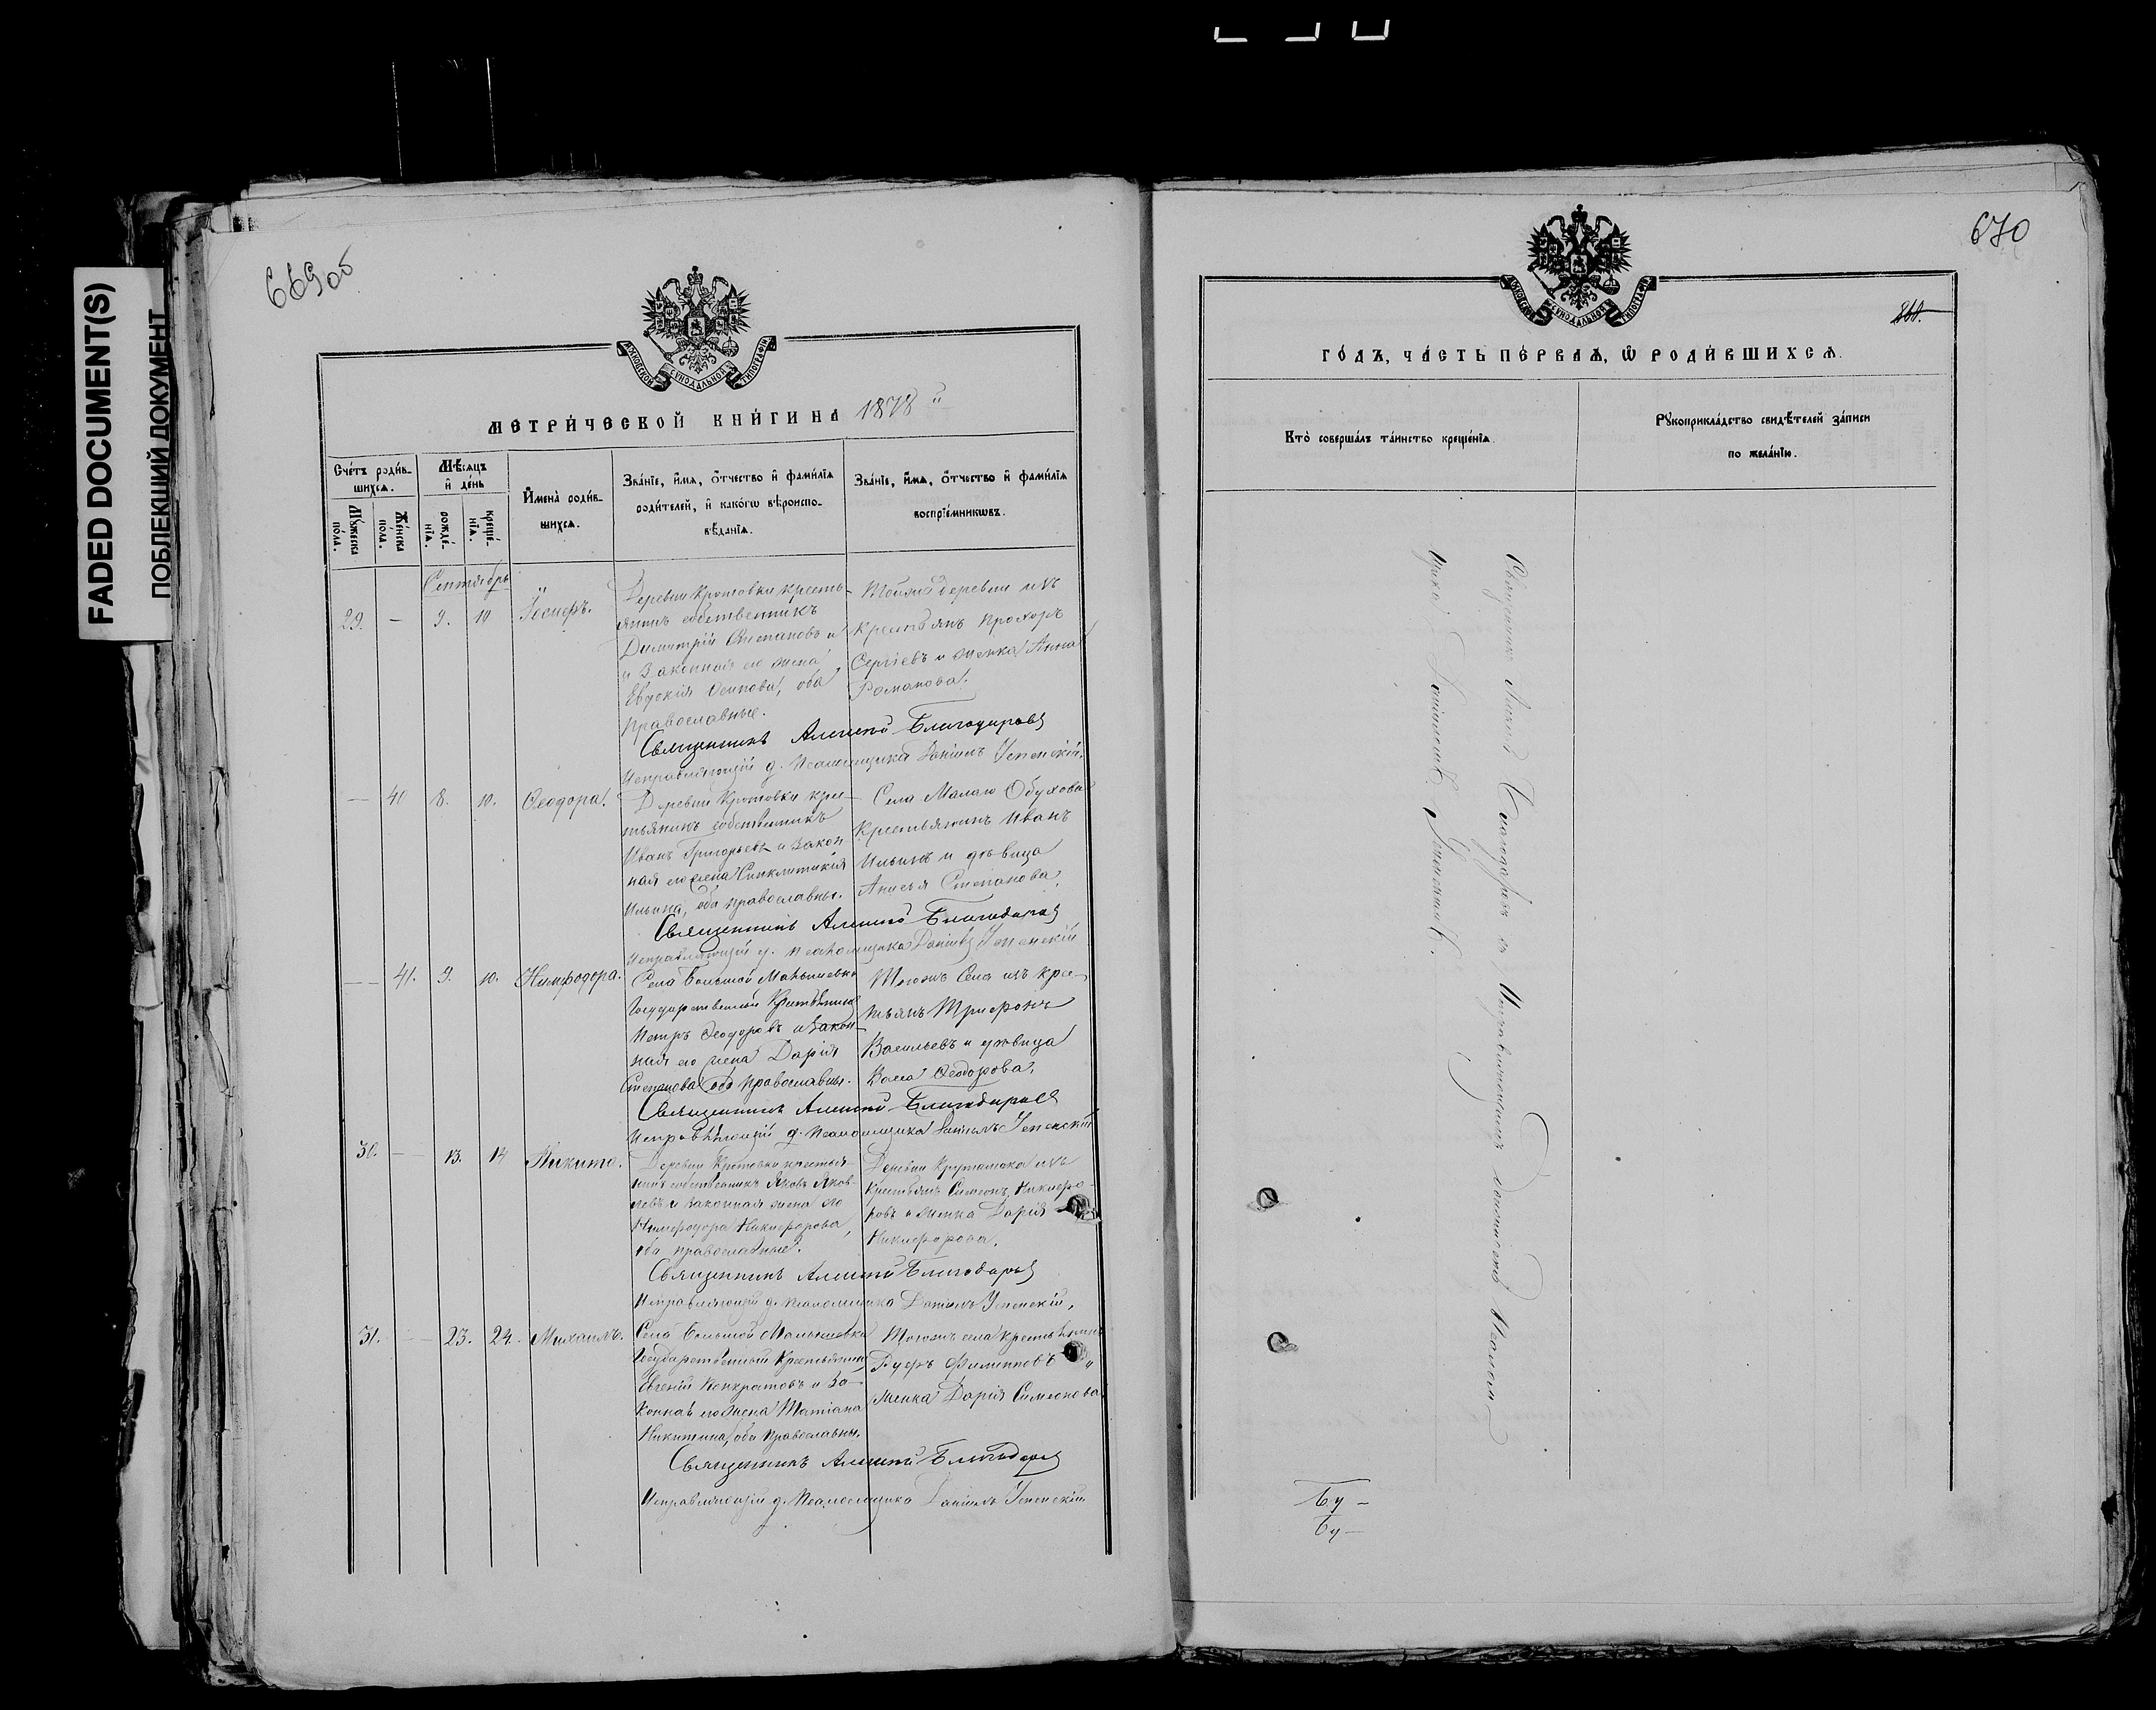 FADED DOCUMENT(S)
ПОБЛЕКШИЙ ДОКУМЕНТ
669 об
МОСКОВСКОЙ СѴНОДАЛЬНОЙ ТИПОГРАФІИ
МЕТРИ́ЧЕСКОЙ КНИ́ГИ НА 1878 й
Сче́тъ роди́в-
шихсѧ.
Мѣ́сѧцъ
и҆ де́нь
Мꙋ́жеска
по́ла.
Же́нска
по́ла.
рожде́-
нїѧ.
креще́-
нїѧ.
И҆мена̀ роди́в-
шихсѧ.
Зва́нїе, и҆́мѧ, ѻ҆́тчество и҆ фами́лїѧ
роди́телей, и҆ како́гѡ вѣроиспо-
вѣ́данїѧ.
Зва́нїе, и҆́мѧ, ѻ҆́тчество и҆ фами́лїѧ
воспрїе́мникѡвъ.
Сентябрь
29. — 9. 10 Іосифъ.
Деревни Кротовки кресть-
янинъ собственникъ
Димитрій Степановъ и
и законная его жена
Евдокія Осипова, оба
православные.
Тойже деревни изъ
крестьянъ Прохоръ
Сергіевъ и женка Анна
Романова.
Священникъ Алексій Благодаровъ
Исправляющій д. псаломщика Даніилъ Успенскій.
— 40 8. 10. Ѳеодора.
Деревни Кротовки крес-
тьянинъ собственникъ
Иванъ Григорьевъ и закон
ная его жена Синклитикія
Ильина, оба православны.
Села Малаго Обухова
крестьянинъ Иванъ
Ильинъ и дѣвица
Анисья Степанова.
Священникъ Алексій Благодаровъ
Исправляющій д. псаломщика Даніилъ Успенскій
— 41. 9. 10. Нимфодора.
Села Большой Малышевки
Государственный Крестьянинъ
Петръ Ѳеодоровъ и закон-
ная его жена Дарія
Степанова оба православны.
Тогожъ Села изъ крес-
тьянъ Трифонъ
Васильевъ и дѣвица
Ѳеодорова.
Священникъ Алексій Благодаровъ
Исправляющій д. псаломщика Даніилъ Успенскій
30. — 13. 14 Никита.
Деревни Кротовки крестья
нинъ собственникъ Яковъ Яков-
левъ и законная жена его
Нимфодора Никифорова,
оба православные.
Деревни изъ
крестьянъ Симеонъ Никифо-
ровъ и женка Дарія
Никифорова.
Священникъ Алексій Благодаровъ
Исправляющій д. псаломщика Даніилъ Успенскій,
31. — 23. 24. Михаилъ.
Села Большой Малышевки
Государственный Крестьянинъ
Евгеній Панкратовъ и за-
конная его жена Татіана
Никитина, оба православны.
Тогожъ села крестьянинъ
Филипповъ и
женка Дарія Симеонова
Священникъ Алексій Благодаровъ
Исправляющій д. псаломщика Даніилъ Успенскій
670
МОСКОВСКОЙ СѴНОДАЛЬНОЙ ТИПОГРАФІИ
ГО́ДЪ, ЧА́СТЬ ПЕ́РВАѦ, Ѽ РОДИ́ВШИХСѦ.
Кто̀ соверша́лъ та́инство креще́нїѧ.
Рꙋкоприкла́дство свидѣ́телей за́писи
по жела́нїю.
Священникъ Алексій Благодаровъ съ Исправляющимъ должность Псалом
щика Даніиломъ Успенскимъ.